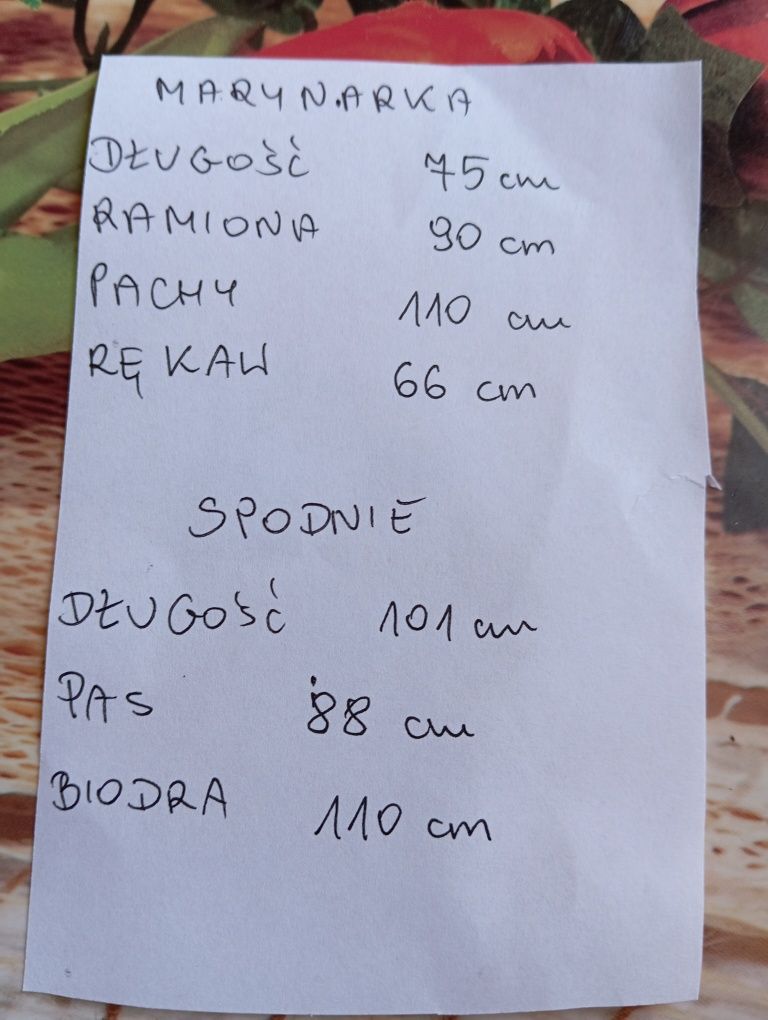 MARYNARKA
DŁUGOŚĆ 75 cm
RAMIONA 90 cm
PACHY 110 cm
RĘKAW 66 cm
SPODNIE
DŁUGOŚĆ 101 cm
PAS 88 cm
BIODRA 110 cm